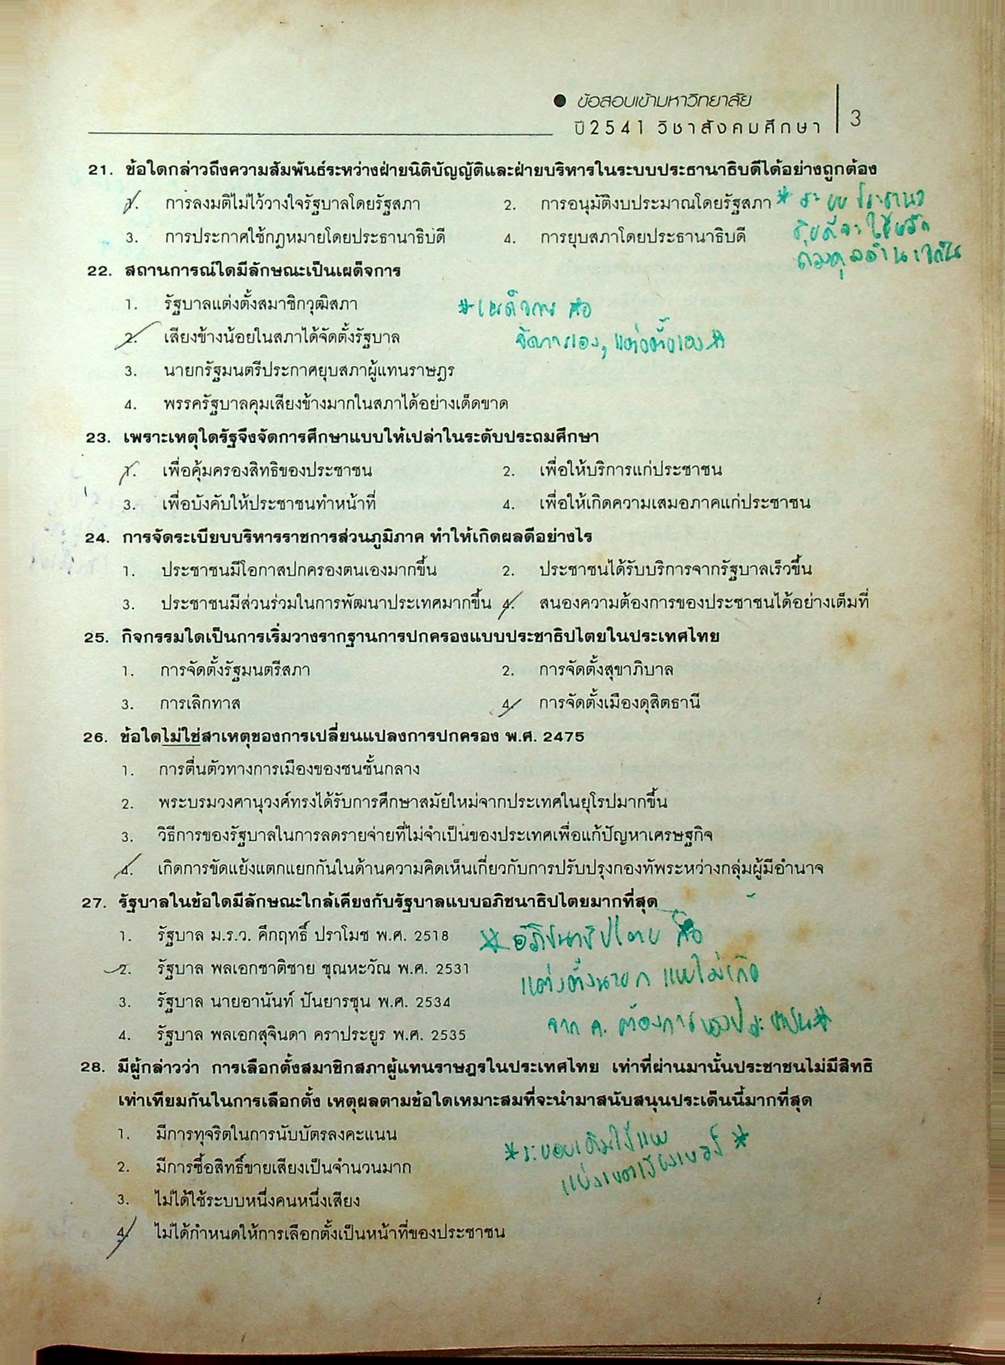 ● ข้อสอบเข้ามหาวิทยาลัย
ปี2541 วิชาสังคมศึกษา 3
21. ข้อใดกล่าวถึงความสัมพันธ์ระหว่างฝ่ายนิติบัญญัติและฝ่ายบริหารในระบบประธานาธิบดีได้อย่างถูกต้อง
1. การลงมติไม่ไว้วางใจรัฐบาลโดยรัฐสภา 2. การอนุมัติงบประมาณโดยรัฐสภา
3. การประกาศใช้กฎหมายโดยประธานาธิบดี 4. การยุบสภาโดยประธานาธิบดี
* ระบบประธานา
ธิบดีจะใช้หลัก
ถ่วงดุลอำนาจกัน
22. สถานการณ์ใดมีลักษณะเป็นเผด็จการ
1. รัฐบาลแต่งตั้งสมาชิกวุฒิสภา
2. เสียงข้างน้อยในสภาได้จัดตั้งรัฐบาล
3. นายกรัฐมนตรีประกาศยุบสภาผู้แทนราษฎร
4. พรรครัฐบาลคุมเสียงข้างมากในสภาได้อย่างเด็ดขาด
*เผด็จการ คือ
จัดการเอง, แต่งตั้งเอง*
23. เพราะเหตุใดรัฐจึงจัดการศึกษาแบบให้เปล่าในระดับประถมศึกษา
1. เพื่อคุ้มครองสิทธิของประชาชน 2. เพื่อให้บริการแก่ประชาชน
3. เพื่อบังคับให้ประชาชนทำหน้าที่ 4. เพื่อให้เกิดความเสมอภาคแก่ประชาชน
24. การจัดระเบียบบริหารราชการส่วนภูมิภาค ทำให้เกิดผลดีอย่างไร
1. ประชาชนมีโอกาสปกครองตนเองมากขึ้น 2. ประชาชนได้รับบริการจากรัฐบาลเร็วขึ้น
3. ประชาชนมีส่วนร่วมในการพัฒนาประเทศมากขึ้น 4. สนองความต้องการของประชาชนได้อย่างเต็มที่
25. กิจกรรมใดเป็นการเริ่มวางรากฐานการปกครองแบบประชาธิปไตยในประเทศไทย
1. การจัดตั้งรัฐมนตรีสภา 2. การจัดตั้งสุขาภิบาล
3. การเลิกทาส 4. การจัดตั้งเมืองดุสิตธานี
26. ข้อใดไม่ใช่สาเหตุของการเปลี่ยนแปลงการปกครอง พ.ศ. 2475
1. การตื่นตัวทางการเมืองของชนชั้นกลาง
2. พระบรมวงศานุวงศ์ทรงได้รับการศึกษาสมัยใหม่จากประเทศในยุโรปมากขึ้น
3. วิธีการของรัฐบาลในการลดรายจ่ายที่ไม่จำเป็นของประเทศเพื่อแก้ปัญหาเศรษฐกิจ
4. เกิดการขัดแย้งแตกแยกกันในด้านความคิดเห็นเกี่ยวกับการปรับปรุงกองทัพระหว่างกลุ่มผู้มีอำนาจ
27. รัฐบาลในข้อใดมีลักษณะใกล้เคียงกับรัฐบาลแบบอภิชนาธิปไตยมากที่สุด
1. รัฐบาล ม.ร.ว. คึกฤทธิ์ ปราโมช พ.ศ. 2518
2. รัฐบาล พลเอกชาติชาย ชุณหะวัณ พ.ศ. 2531
3. รัฐบาล นายอานันท์ ปันยารชุน พ.ศ. 2534
4. รัฐบาล พลเอกสุจินดา คราประยูร พ.ศ. 2535
* อภิชนาธิปไตย คือ
แต่งตั้งนายก แบบไม่เกิด
จาก ค. ต้องการของประชาชน*
28. มีผู้กล่าวว่า การเลือกตั้งสมาชิกสภาผู้แทนราษฎรในประเทศไทย เท่าที่ผ่านมานั้นประชาชนไม่มีสิทธิ
เท่าเทียมกันในการเลือกตั้ง เหตุผลตามข้อใดเหมาะสมที่จะนำมาสนับสนุนประเด็นนี้มากที่สุด
1. มีการทุจริตในการนับบัตรลงคะแนน
2. มีการซื้อสิทธิ์ขายเสียงเป็นจำนวนมาก
3. ไม่ได้ใช้ระบบหนึ่งคนหนึ่งเสียง
4. ไม่ได้กำหนดให้การเลือกตั้งเป็นหน้าที่ของประชาชน
*ระบอบเดิมใช้แบบ
แบ่งเขตเรียงเบอร์ *